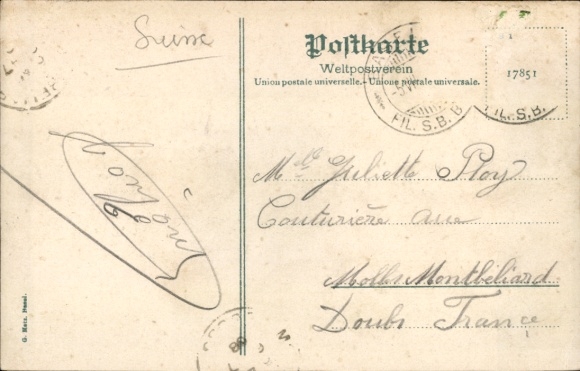 Suisse
Postkarte
Weltpostverein
Union postale universelle. - Unione postale universale.
17851
FIL. S.B.B.
FIL. S.B.
Mlle Juliette Ploy
Couturière aux
Molles Montbéliard
Doubs France
G. Metz, Basel.